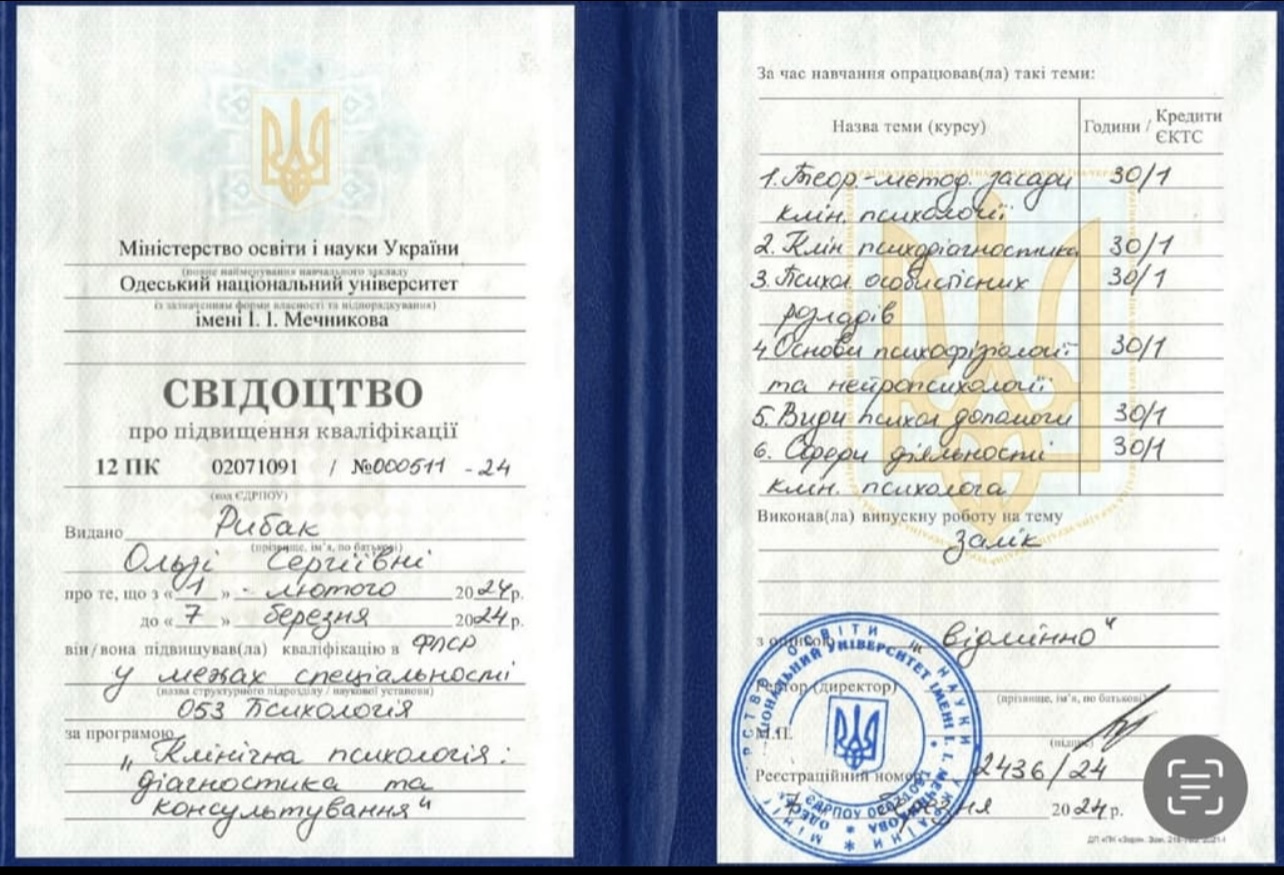 Міністерство освіти і науки України
(повне найменування навчального закладу
Одеський національний університет
із зазначенням форми власності та підпорядкування)
імені І. І. Мечникова
СВІДОЦТВО
про підвищення кваліфікації
12 ПК 02071091 / №000511 - 24
(код ЄДРПОУ)
Видано Рибак
(прізвище, ім'я, по батькові)
Ользі Сергіївні
про те, що з «1» лютого 2024р.
до «7» березня 2024р.
він/вона підвищував(ла) кваліфікацію в ФПСР
у межах спеціальності
(назва структурного підрозділу / наукової установи)
053 Психологія
за програмою
„Клінічна психологія:
діагностика та
консультування"
За час навчання опрацював(ла) такі теми:
Назва теми (курсу) Години / Кредити ЄКТС
1. Теор.-метод. засади 30/1
клін. психології
2. Клін психодіагностика 30/1
3. Психол особистісних 30/1
розладів
4 Основи психофізіології 30/1
та нейропсихології
5. Види психол допомоги 30/1
6. Сфери діяльності 30/1
клін. психолога
Виконав(ла) випускну роботу на тему
Залік
з оцінкою „відмінно"
Ректор (директор)
(прізвище, ім'я, по батькові)
М.П.
(підпис)
Реєстраційний номер 2436/24
7 березня 2024р.